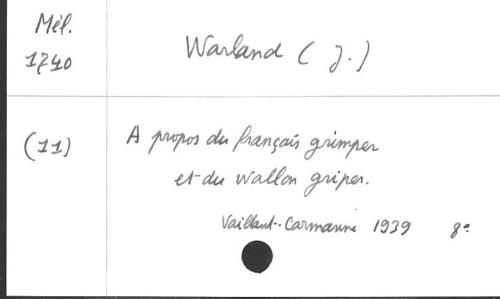 Mél.
1740
Warland (J.)
(11)
A propos du français grimper
et du wallon griper.
Vaillant-Carmanne 1939 8°